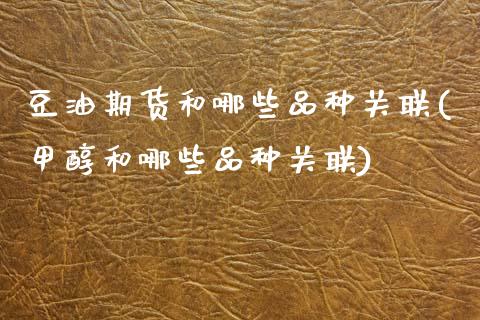 豆油期货和哪些品种关联(
甲醇和哪些品种关联)